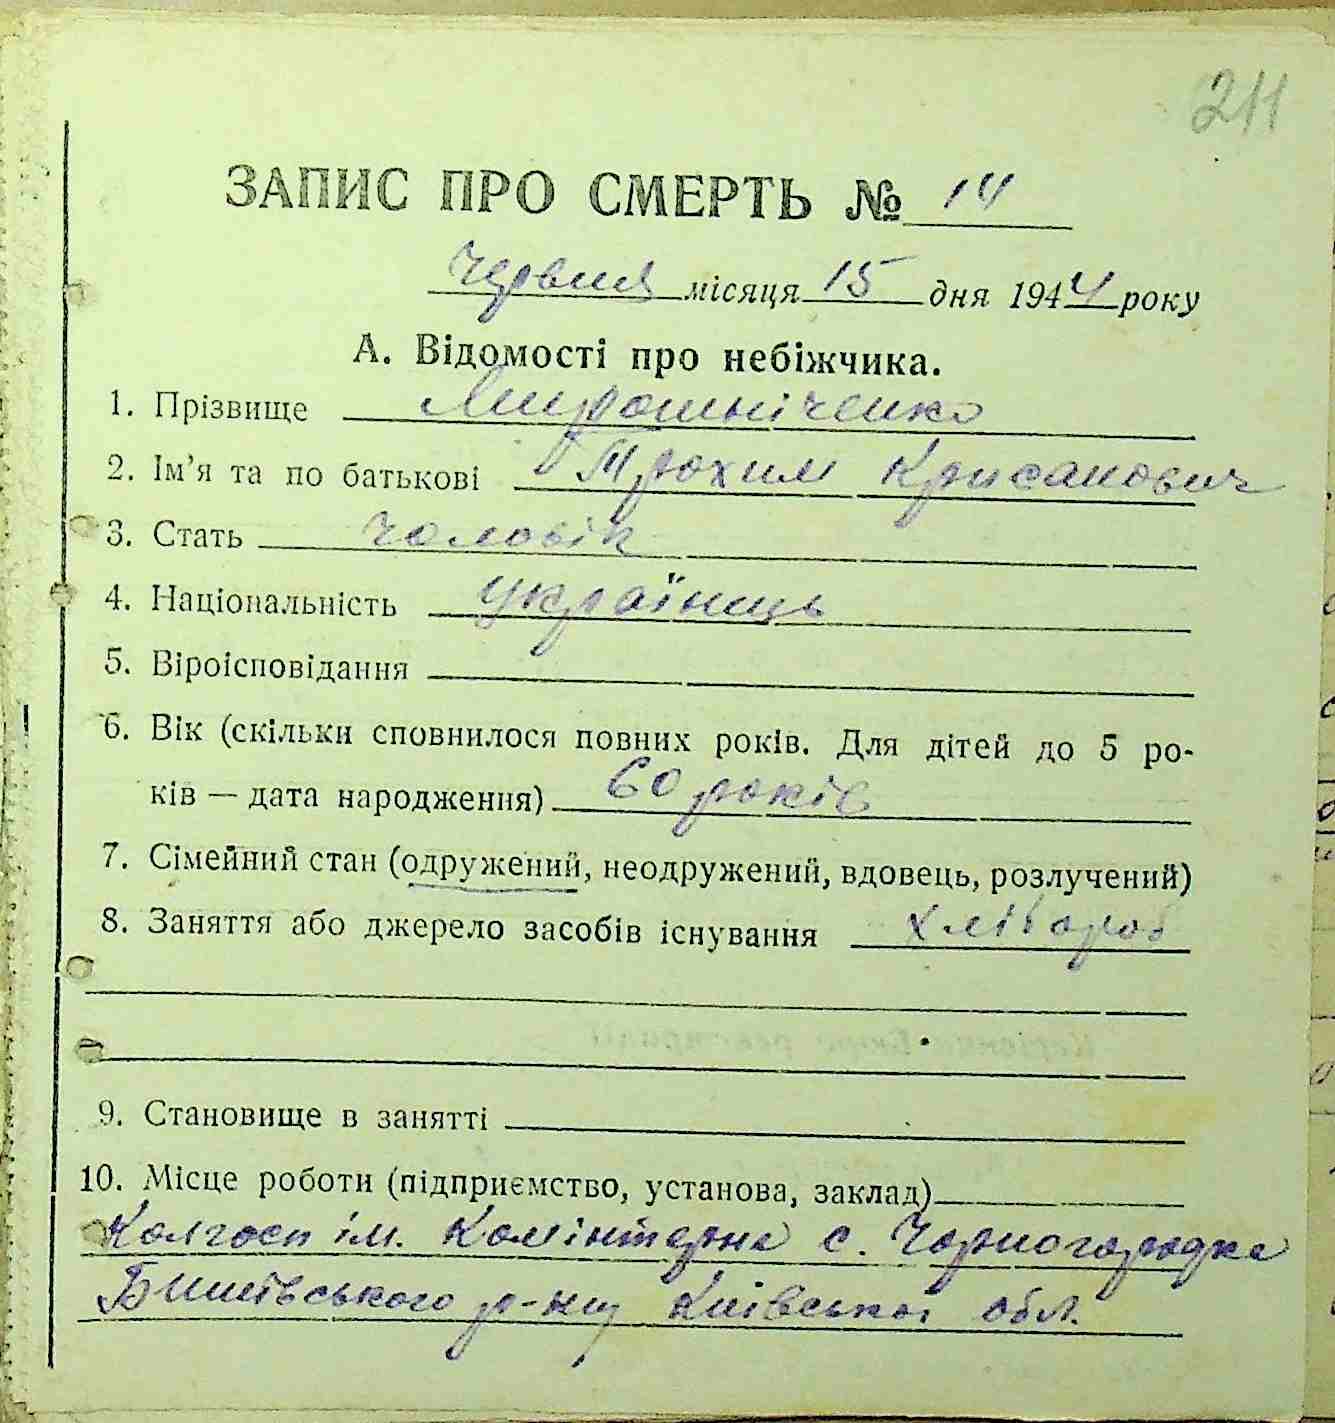 211
ЗАПИС ПРО СМЕРТЬ № 14
Червня місяця 15 дня 1944 року
А. Відомості про небіжчика.
1. Прізвище Мирошніченко
2. Ім'я та по батькові Трохим Крисанович
3. Стать чоловік
4. Національність українець
5. Віроісповідання
6. Вік (скільки сповнилося повних років. Для дітей до 5 ро-
ків — дата народження) 60 років
7. Сімейний стан (одружений, неодружений, вдовець, розлучений)
8. Заняття або джерело засобів існування хлібороб
9. Становище в занятті
10. Місце роботи (підприємство, установа, заклад)
Колгосп ім. Комінтерна с. Чорногородка
Бишівського р-ну Київської обл.